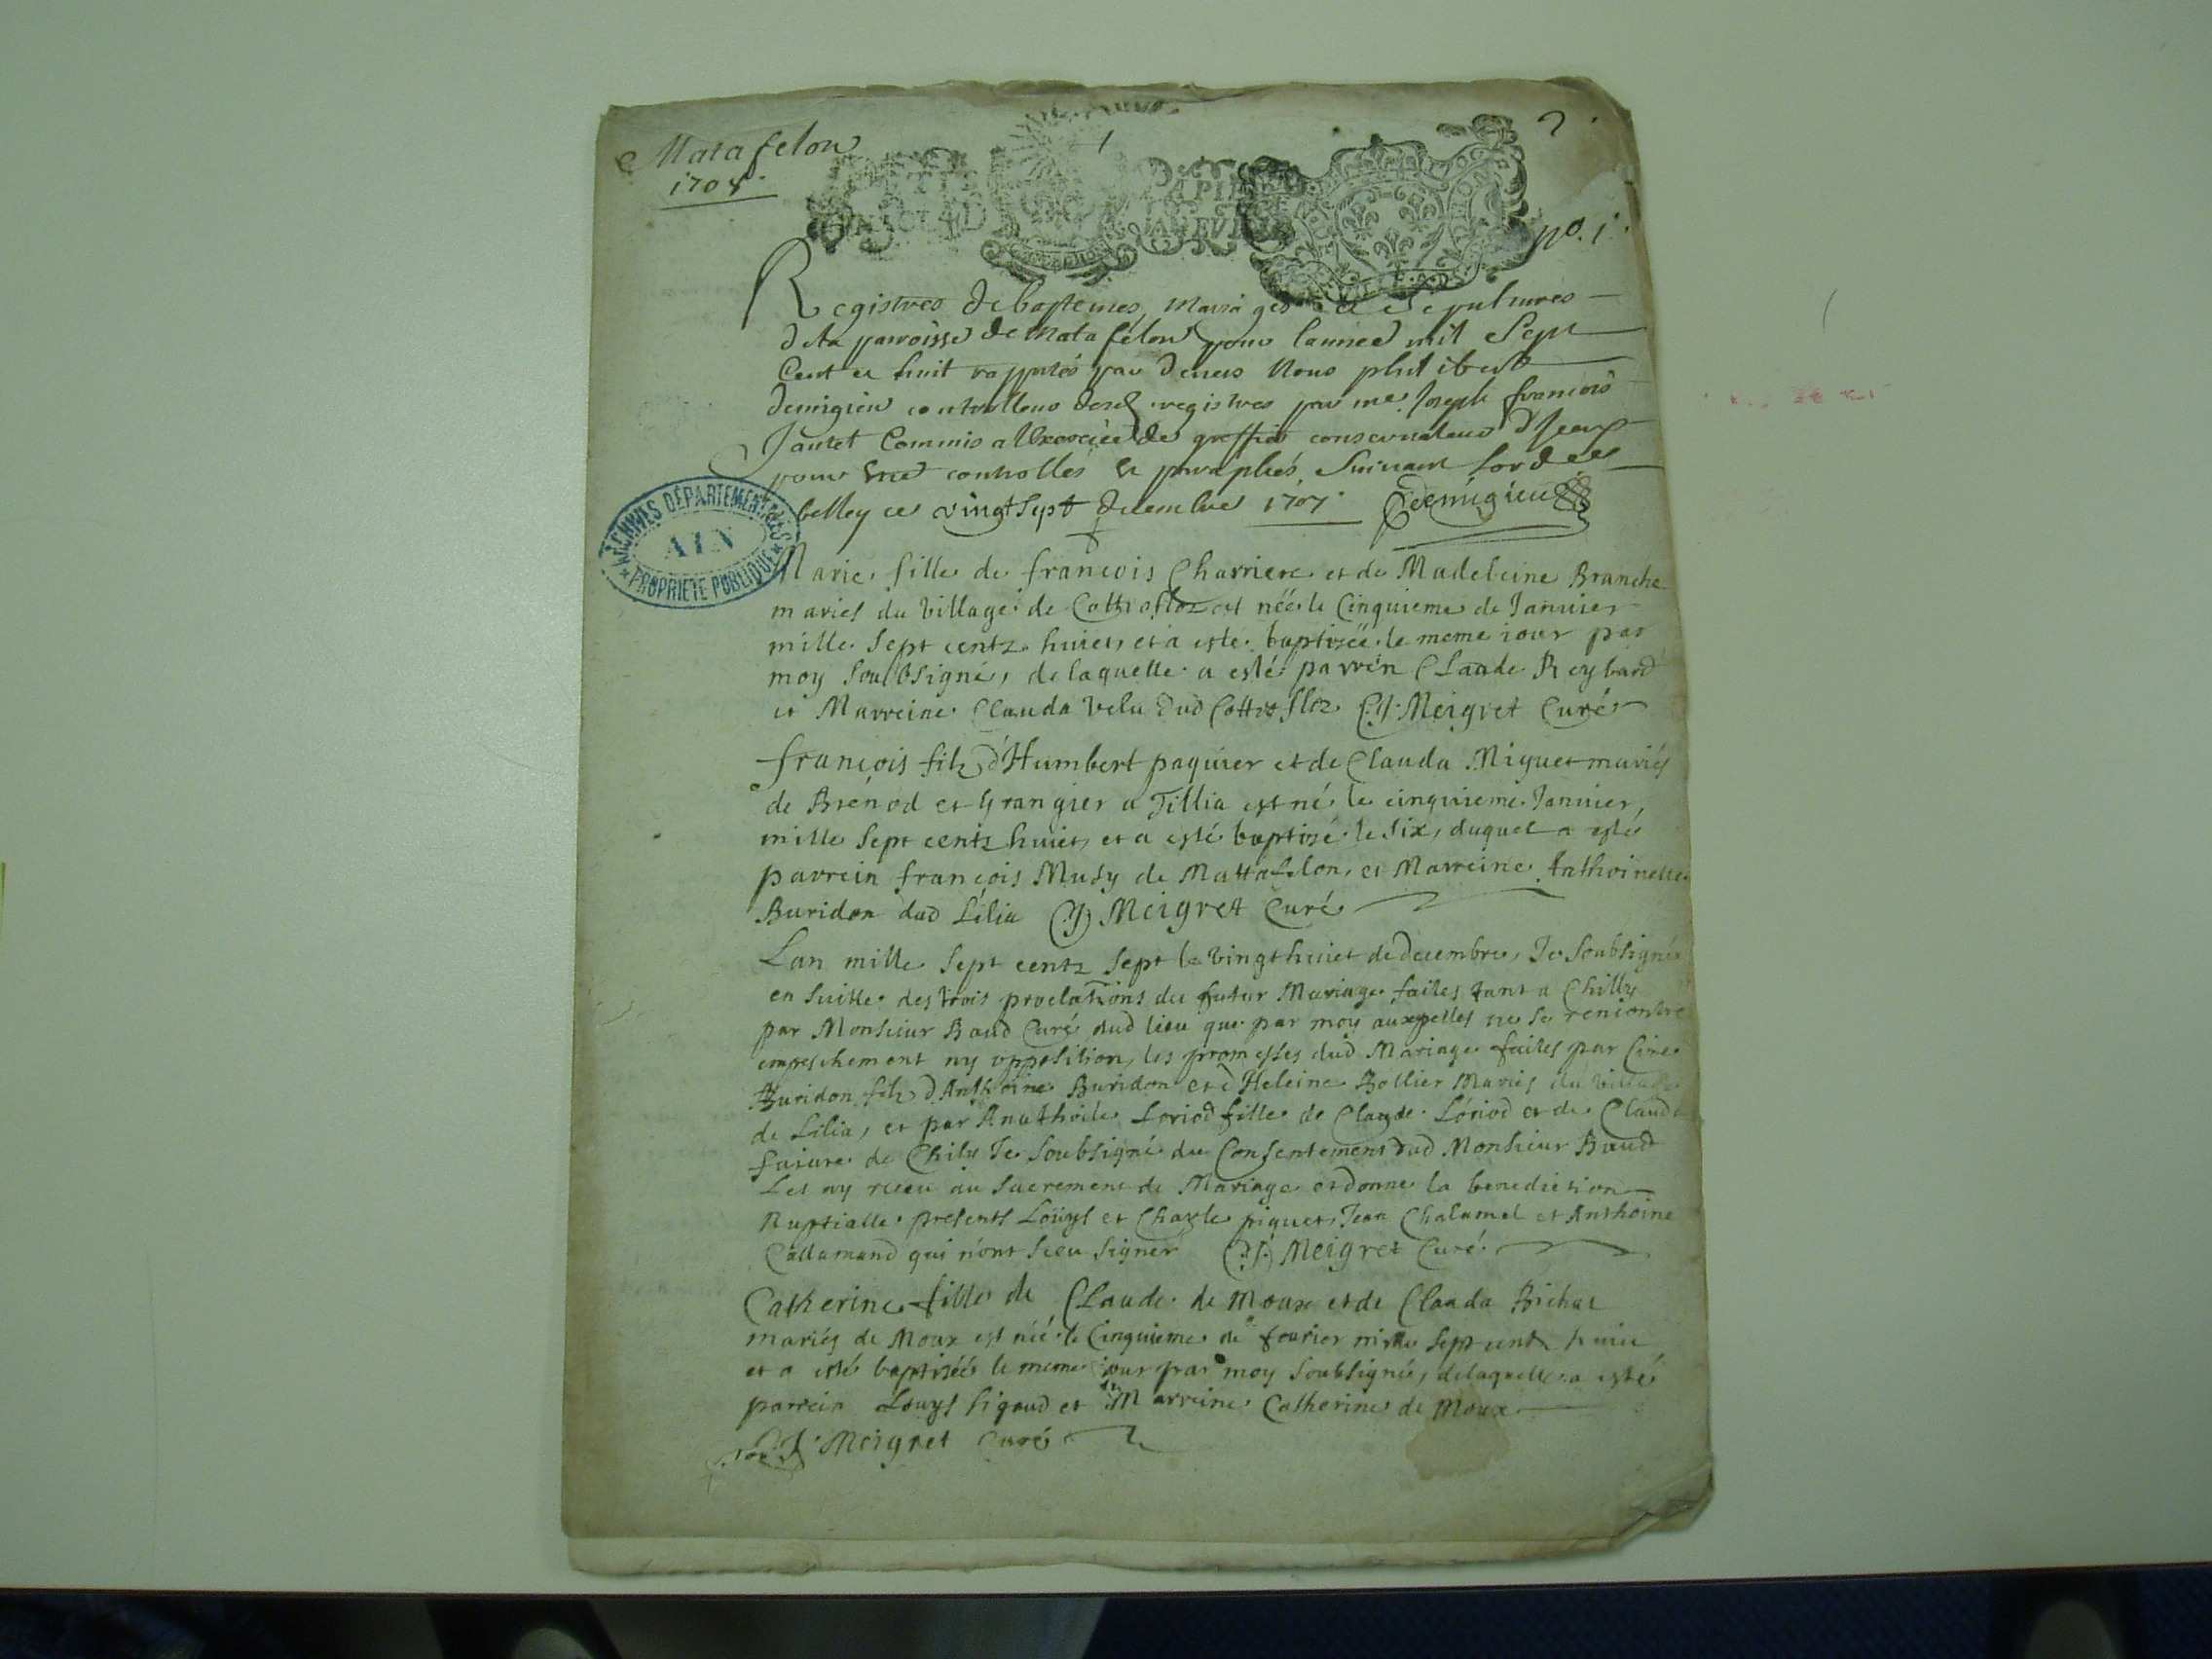 Matafelon
1708
1
2
PETIT PAPIER
no. 1.
Registres de baptemes, Mariages et Sepultures
de la parroisse de Matafelon pour lannee mil Sept
Cent et huit rapportés par devers Nous philibert
Demigieu controlleur desd registres par me. Joseph françois
Jantet Commis a lExercice de greffier conservateur d'Iceux
pour Etre controllés & paraphés Suivant lordce
belley ce vingt Sept decembre 1707 Demigieu
ARCHIVES DÉPARTEMENTALES
AIN
PROPRIETE PUBLIQUE
Marie fille de francois Charriere et de Madeleine Branche
mariés du village de est néé le Cinquieme de Janvier
mille Sept centz huict, et a esté baptisée le meme iour par
moy Soubsigné, de laquelle a esté parrin Claude Reybard
et Marreine Clauda Velu dud Meigret Curé
françois filz d'Humbert paquier et de Clauda Niguet mariés
de Brénod et Grangier a Lillia est né le cinquieme Janvier,
mille Sept centz huict, et a esté baptisé le Six, duquel a esté
parrein françois Musy de Mattafelon, et Marreine Anthoinette
Buridon dud Lélia Meigret Curé
Lan mille Sept centz Sept le vingthuict de decembre, Je Soubsigné
en Suitte des trois proclations du futur Mariage faites tant a Chilly
par Monsieur Baud Curé dud lieu que par moy auxquelles ne se rencontre
empeschement ny opposition, les promesses dud Mariage faites par
Buridon filz d'Anthoine Buridon et d'Heleine Bollier Mariés du village
de Lilia, et par Anathoile Loriod fille de Claude Loriod et de Clauda
de Chily Je Soubsigné du Consentement dud Monsieur Baud
Les ay receu au Sacrement de Mariage et donne la benediction
Nuptialle presents Loüys et Charle piquet, Jean Chalamel et Anthoine
Callamand qui n'ont Sceu Signer Meigret Curé
Catherine fille de Claude de Moux et de Clauda Bichat
mariés de Moux est néé le Cinquieme de feurier mille Sept centz huict
et a esté baptisée le meme iour par moy Soubsigné, delaquelle a esté
parrein Louys Sigoud et Marreine Catherine de Moux
Meigret Curé